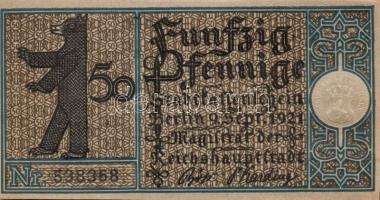 Funfzig
50 Pfennige
Stadtkassenschein
Berlin 9. Sept. 1921
Magistrat der
Reichshauptstadt
Nr. 538368